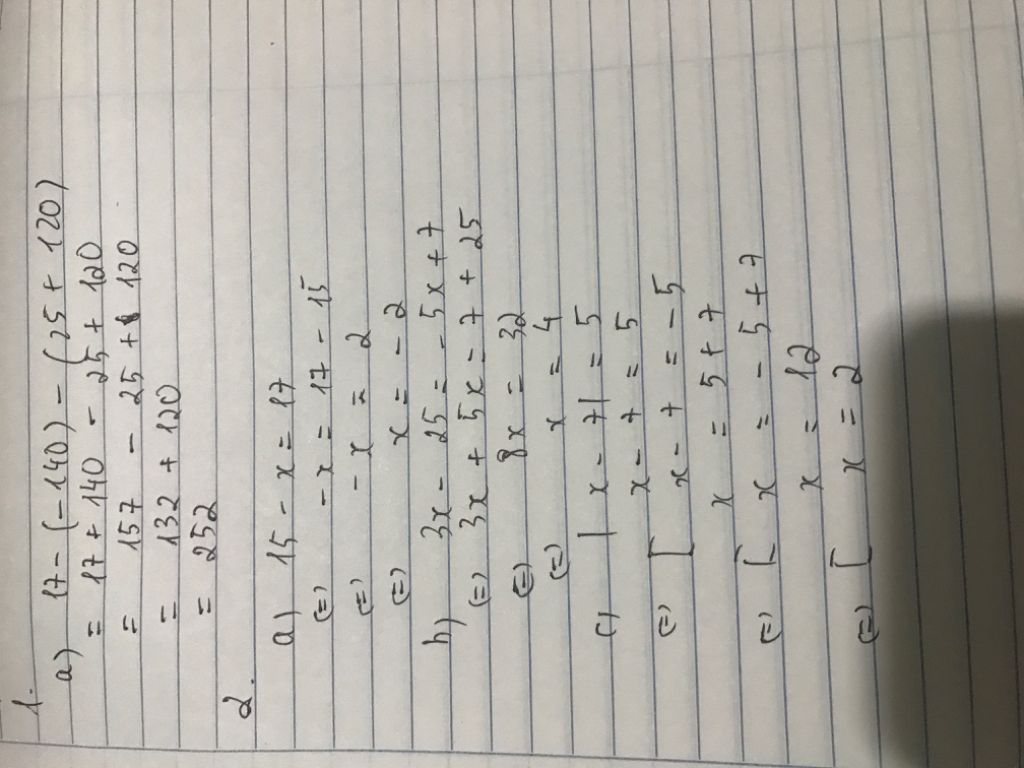 1.
a) 17 - (-140) - (25 + 120)
= 17 + 140 - 25 + 120
= 157 - 25 + 120
= 132 + 120
= 252
2.
a) 15 - x = 17
(=) -x = 17 - 15
(=) -x = 2
(=) x = -2
b) 3x - 25 = -5x + 7
(=) 3x + 5x = 7 + 25
(=) 8x = 32
(=) x = 4
c) |x - 7| = 5
x - 7 = 5
(=) [ x - 7 = -5
x = 5 + 7
(=) [ x = -5 + 7
x = 12
(=) [ x = 2